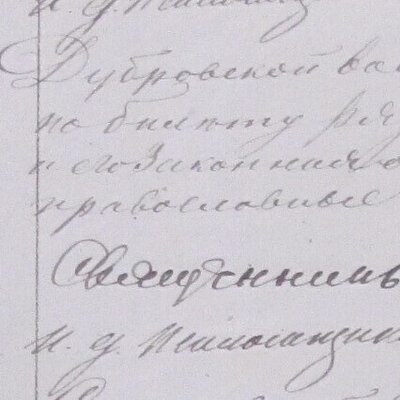 и. д. Псаломщик
Дубровской вол
по билету ряд
и его законная
православные
Священникъ
И. д. Псаломщик